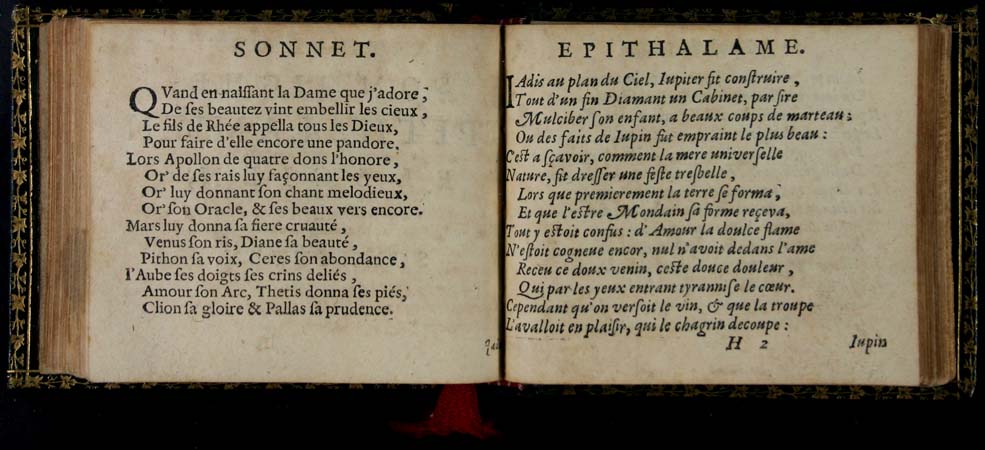 SONNET.
QVand en naiſſant la Dame que j'adore,
De ſes beautez vint embellir les cieux,
Le fils de Rhée appella tous les Dieux,
Pour faire d'elle encore une pandore.
Lors Apollon de quatre dons l'honore,
Or' de ſes rais luy façonnant les yeux,
Or' luy donnant ſon chant melodieux,
Or' ſon Oracle, & ſes beaux vers encore.
Mars luy donna ſa fiere cruauté,
Venus ſon ris, Diane ſa beauté,
Pithon ſa voix, Ceres ſon abondance,
l'Aube ſes doigts ſes crins deliés,
Amour ſon Arc, Thetis donna ſes piés,
Clion ſa gloire & Pallas ſa prudence.
EPITHALAME.
IAdis au plan du Ciel, Iupiter fit conſtruire,
Tout d'un fin Diamant un Cabinet, par ſire
Mulciber ſon enfant, a beaux coups de marteau;
Ou des faits de Iupin fut empraint le plus beau:
C'eſt a ſçavoir, comment la mere univerſelle
Nature, fit dreſſer une feſte treſbelle,
Lors que premierement la terre ſe forma,
Et que l'eſtre Mondain ſa forme reçeva,
Tout y eſtoit confus: d'Amour la doulce flame
N'eſtoit cogneue encor, nul n'avoit dedans l'ame
Receu ce doux venin, ceſte douce douleur,
Qui par les yeux entrant tyranniſe le cœur.
Cependant qu'on verſoit le vin, & que la troupe
L'avalloit en plaiſir, qui le chagrin decoupe:
H 2 Iupin